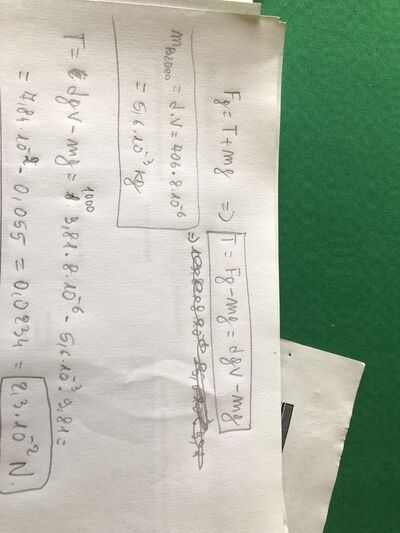 Fg = T + mg => T = Fg - mg = dgV - mg
m = d·V = 706·8·10⁻⁶ =>
= 5,6·10⁻³ kg
1000
T = dgV - mg = 9,81·8·10⁻⁶ - 5,6·10⁻³·9,81 =
= 7,84·10⁻² - 0,055 = 0,0234 = 2,3·10⁻² N.